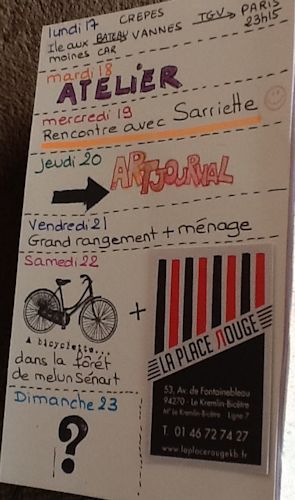 lundi 17 CRÊPES TGV → PARIS
Ile aux BATEAU VANNES 23h15
moines CAR
mardi 18
ATELIER
mercredi 19
Rencontre avec Sarriette
jeudi 20
ARTJOURNAL
Vendredi 21
Grand rangement + ménage
Samedi 22
A bicyclette...
+
dans la forêt
de melun Sénart
LA PLACE ROUGE
53, Av. de Fontainebleau
94270 - Le Kremlin-Bicêtre
M° Le Kremlin-Bicêtre Ligne 7
T. 01 46 72 74 27
www.laplacerougekb.fr
Dimanche 23
?